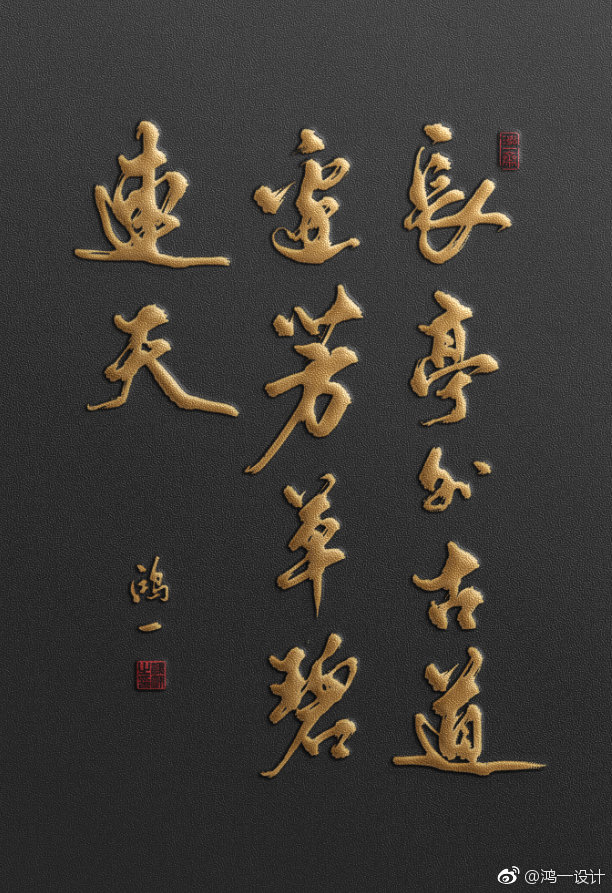 長亭外古道
邊芳草碧
連天
鴻一
@鸿一设计